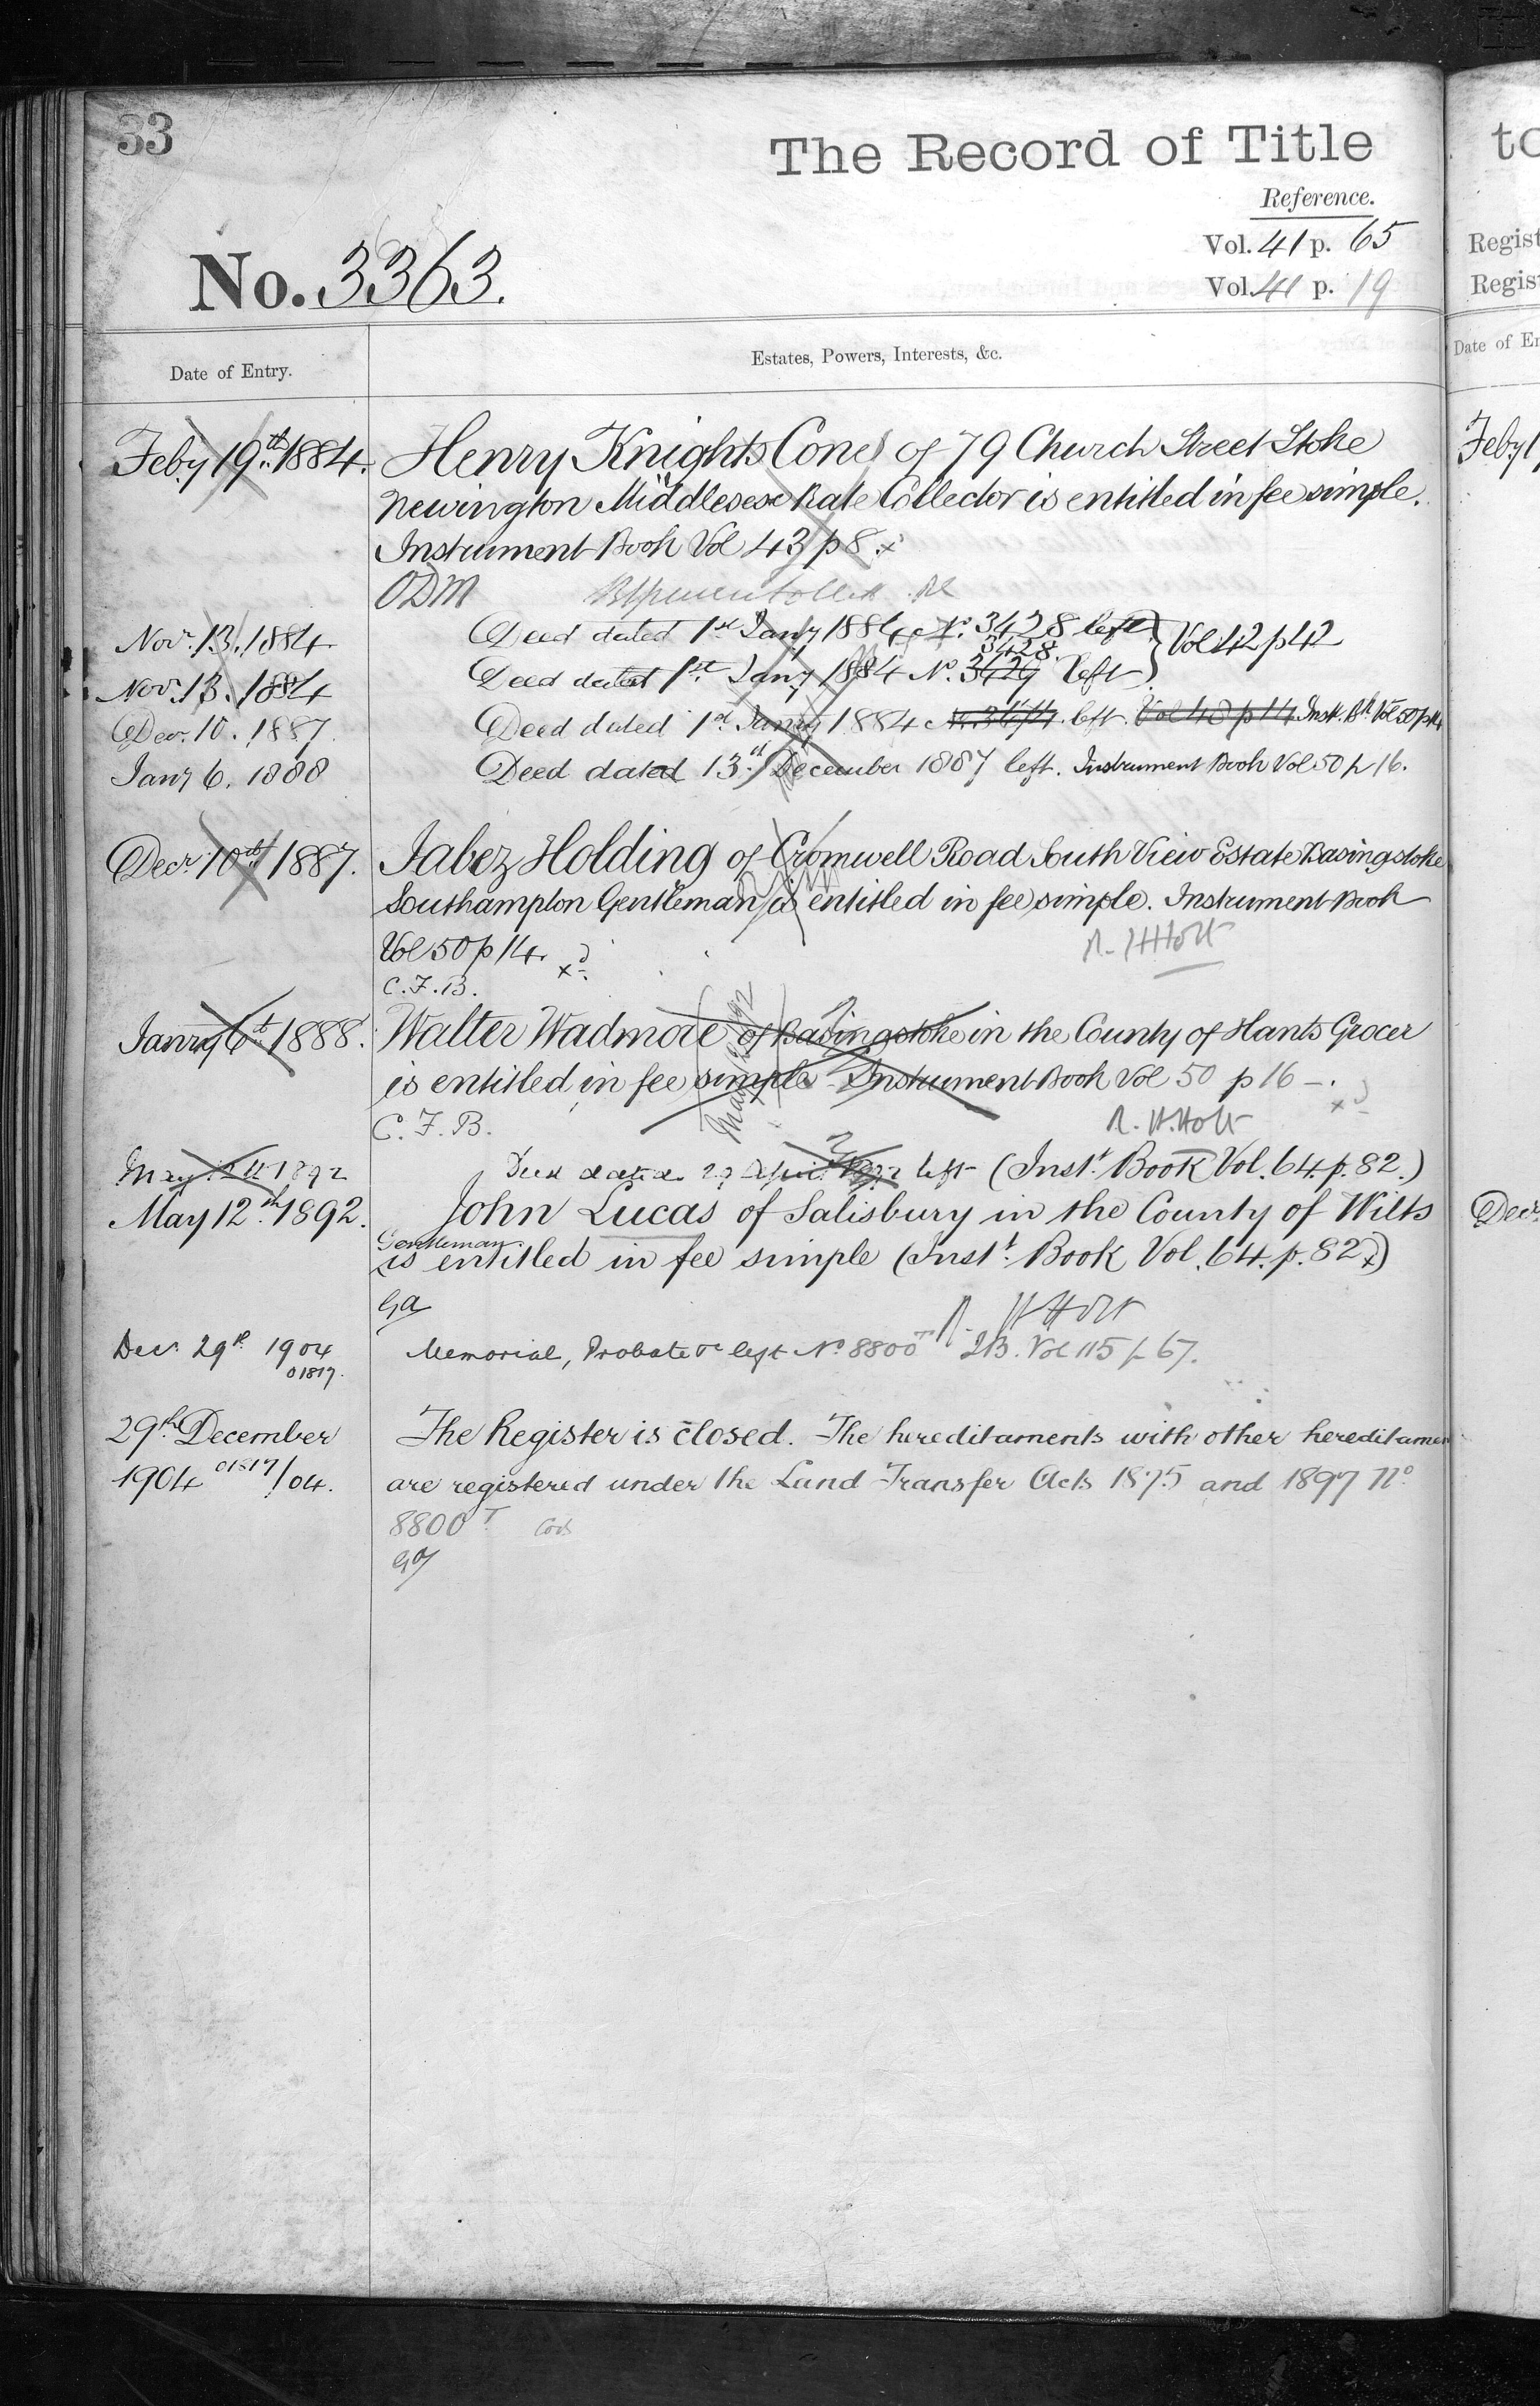 33
The Record of Title
Reference.
Vol. 41 p. 65
Vol. 41 p. 19
No. 3363.
Date of Entry.
Estates, Powers, Interests, &c.
Feby 19th 1884. Henry Knights Cone of 79 Church Street Stoke
Newington Middlesex Rate Collector is entitled in fee simple.
Instrument Book Vol 43 p 8 x
ODM
Nov. 13. 1884 Deed dated 1st Jany 1884 No. 3428 left } Vol 42 p 42
3428
Nov. 13. 1884 Deed dated 1st Jany 1884 No. 3429 left
Dec. 10. 1887. Deed dated 1st Jany 1884 left. Vol 43 p 14 Inst. Bk Vol 50 p 14
Jany 6. 1888 Deed dated 13th December 1887 left. Instrument Book Vol 50 p 16.
Decr. 10th 1887. Jabez Holding of Cromwell Road South View Estate Basingstoke
Southampton Gentleman is entitled in fee simple. Instrument Book
Vol 50 p 14. x
R. H. Holt
C.F.B.
Janry 6th 1888. Walter Wadmore of Basingstoke in the County of Hants Grocer
is entitled in fee simple Instrument Book Vol 50 p 16 -. x
C.F.B. R. H. Holt
May 1892 Deed dated 29 April 1892 left (Inst. Book Vol. 64. p. 82.)
May 12th 1892. John Lucas of Salisbury in the County of Wilts
Gentleman
is entitled in fee simple (Inst. Book Vol. 64. p. 82 x)
R. H. Holt
Dec. 29th 1904 Memorial, Probate &c left No 8800T I.B. Vol 115 p 67.
01817.
29th December The Register is closed. The hereditaments with other hereditamen
1904 01817/04. are registered under the Land Transfer Acts 1875 and 1897 No
8800T
to
Regist
Regis
Date of En
Feby 1
Decr